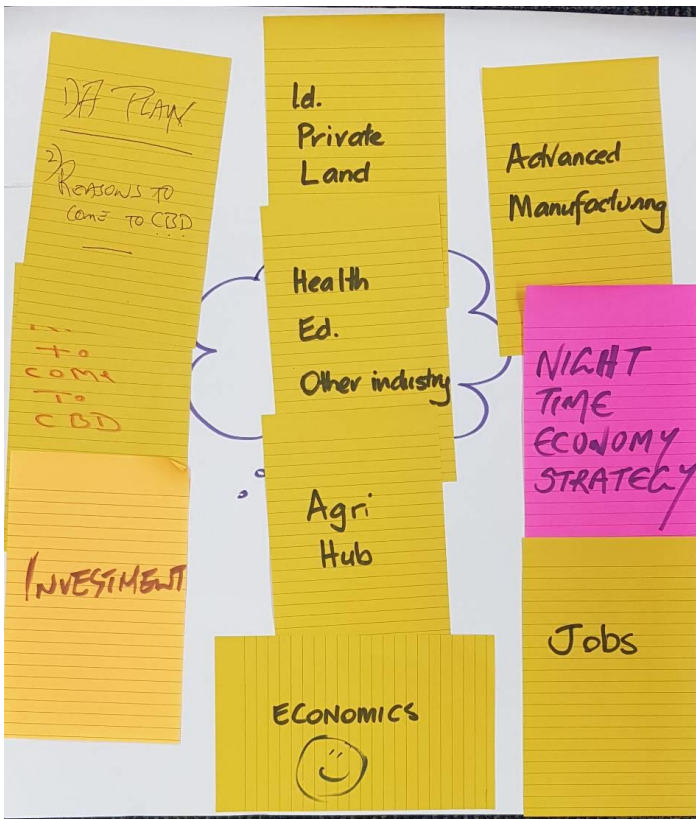 1) A PLAN
2) REASONS TO
COME TO CBD
TO
COME
TO
CBD
INVESTMENT
Id.
Private
Land
Health
Ed.
Other industry
Agri
Hub
ECONOMICS
Advanced
Manufacturing
NIGHT
TIME
ECONOMY
STRATEGY
Jobs